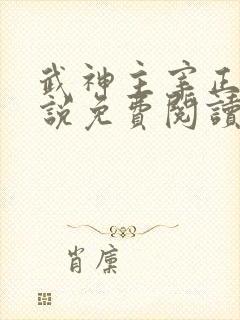 武神主宰正
說免費閱讀
肖廩